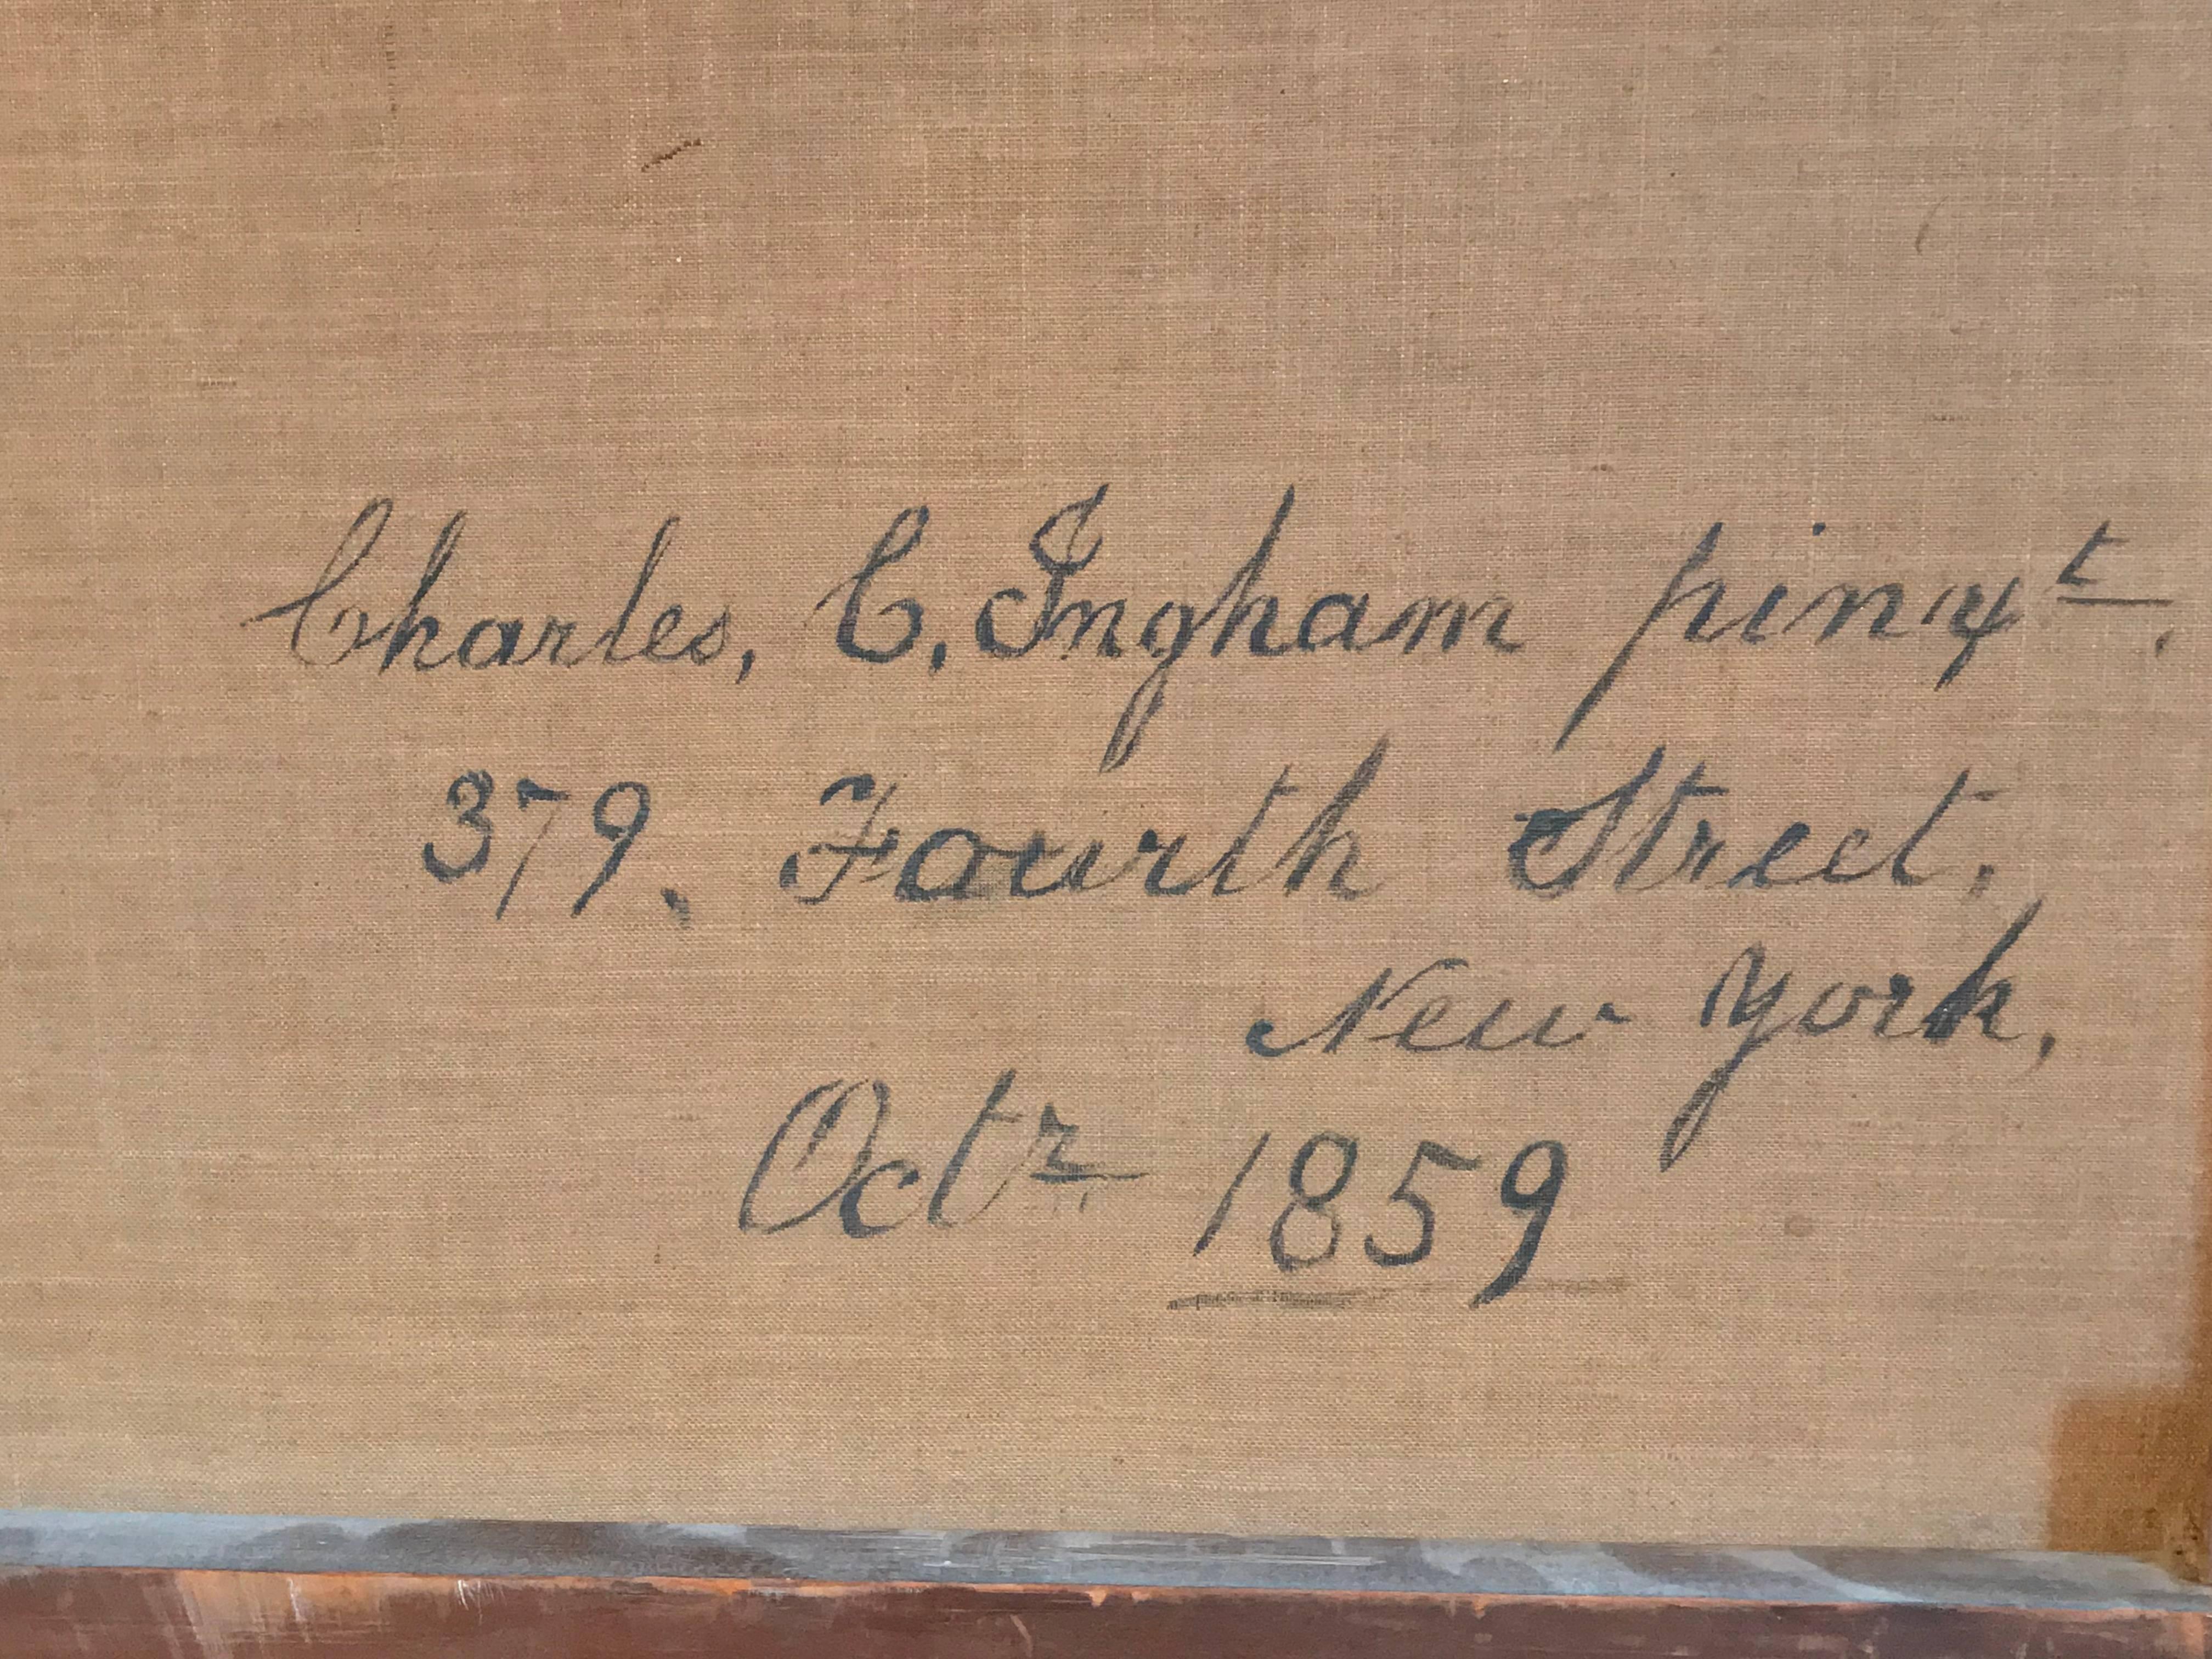 Charles, C. Ingham pinxt.
379, Fourth Street,
New York,
Octr 1859